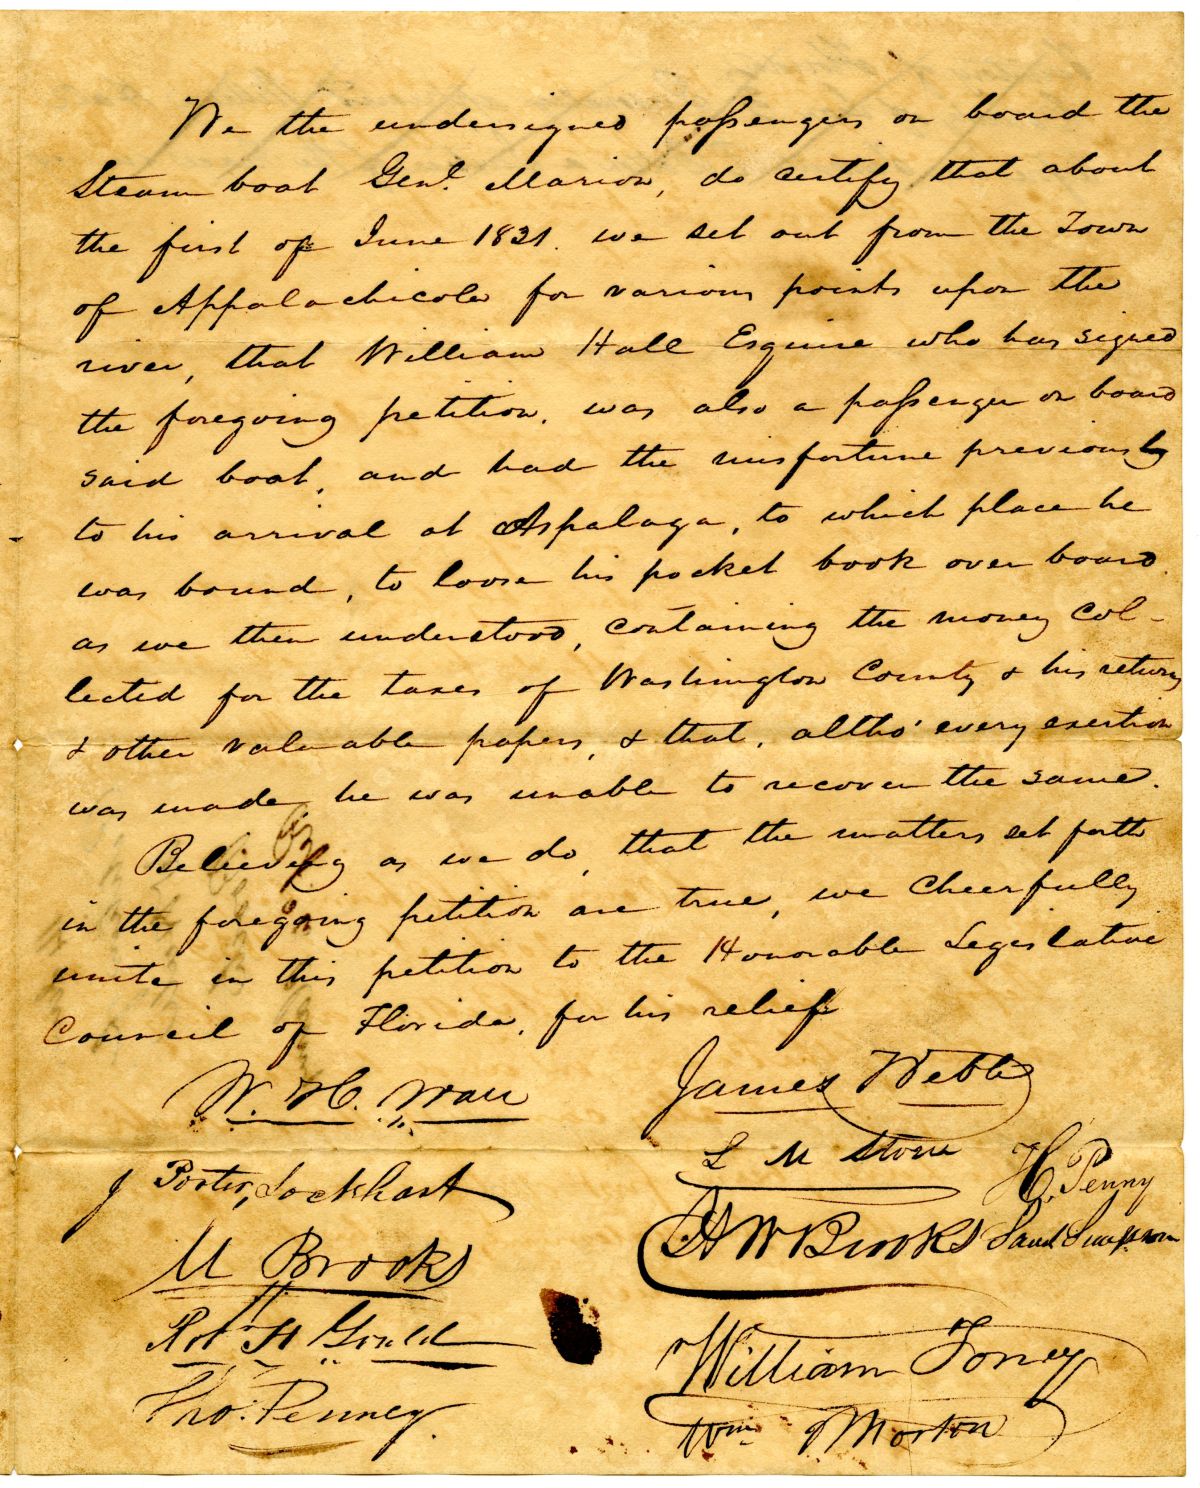 We the undersigned passengers on board the
Steam boat Genl. Marion, do certify that about
the first of June 1831. we set out from the Town
of Appalachicola for various points upon the
river, that William Hall Esquire who has signed
the foregoing petition, was also a passenger on board
said boat, and had the misfortune previously
to his arrival at Aspalaga, to which place he
was bound, to loose his pocket book over board
as we then understood, containing the money Col-
lected for the taxes of Washington County & his returns
& other valuable papers, & that, altho' every exertion
was made he was unable to recover the same.
Believing as we do, that the matters set forth
in the foregoing petition are true, we Cheerfully
unite in this petition to the Honorable Legislative
Council of Florida, for his relief
James Webb
W. H. Wall
L M Stone
H. Penny
J Porter Lockhart
H W Brooks Saml Simpson
M Brooks
Robt H Gould
William Toney
Tho. Penney
Wm Morton